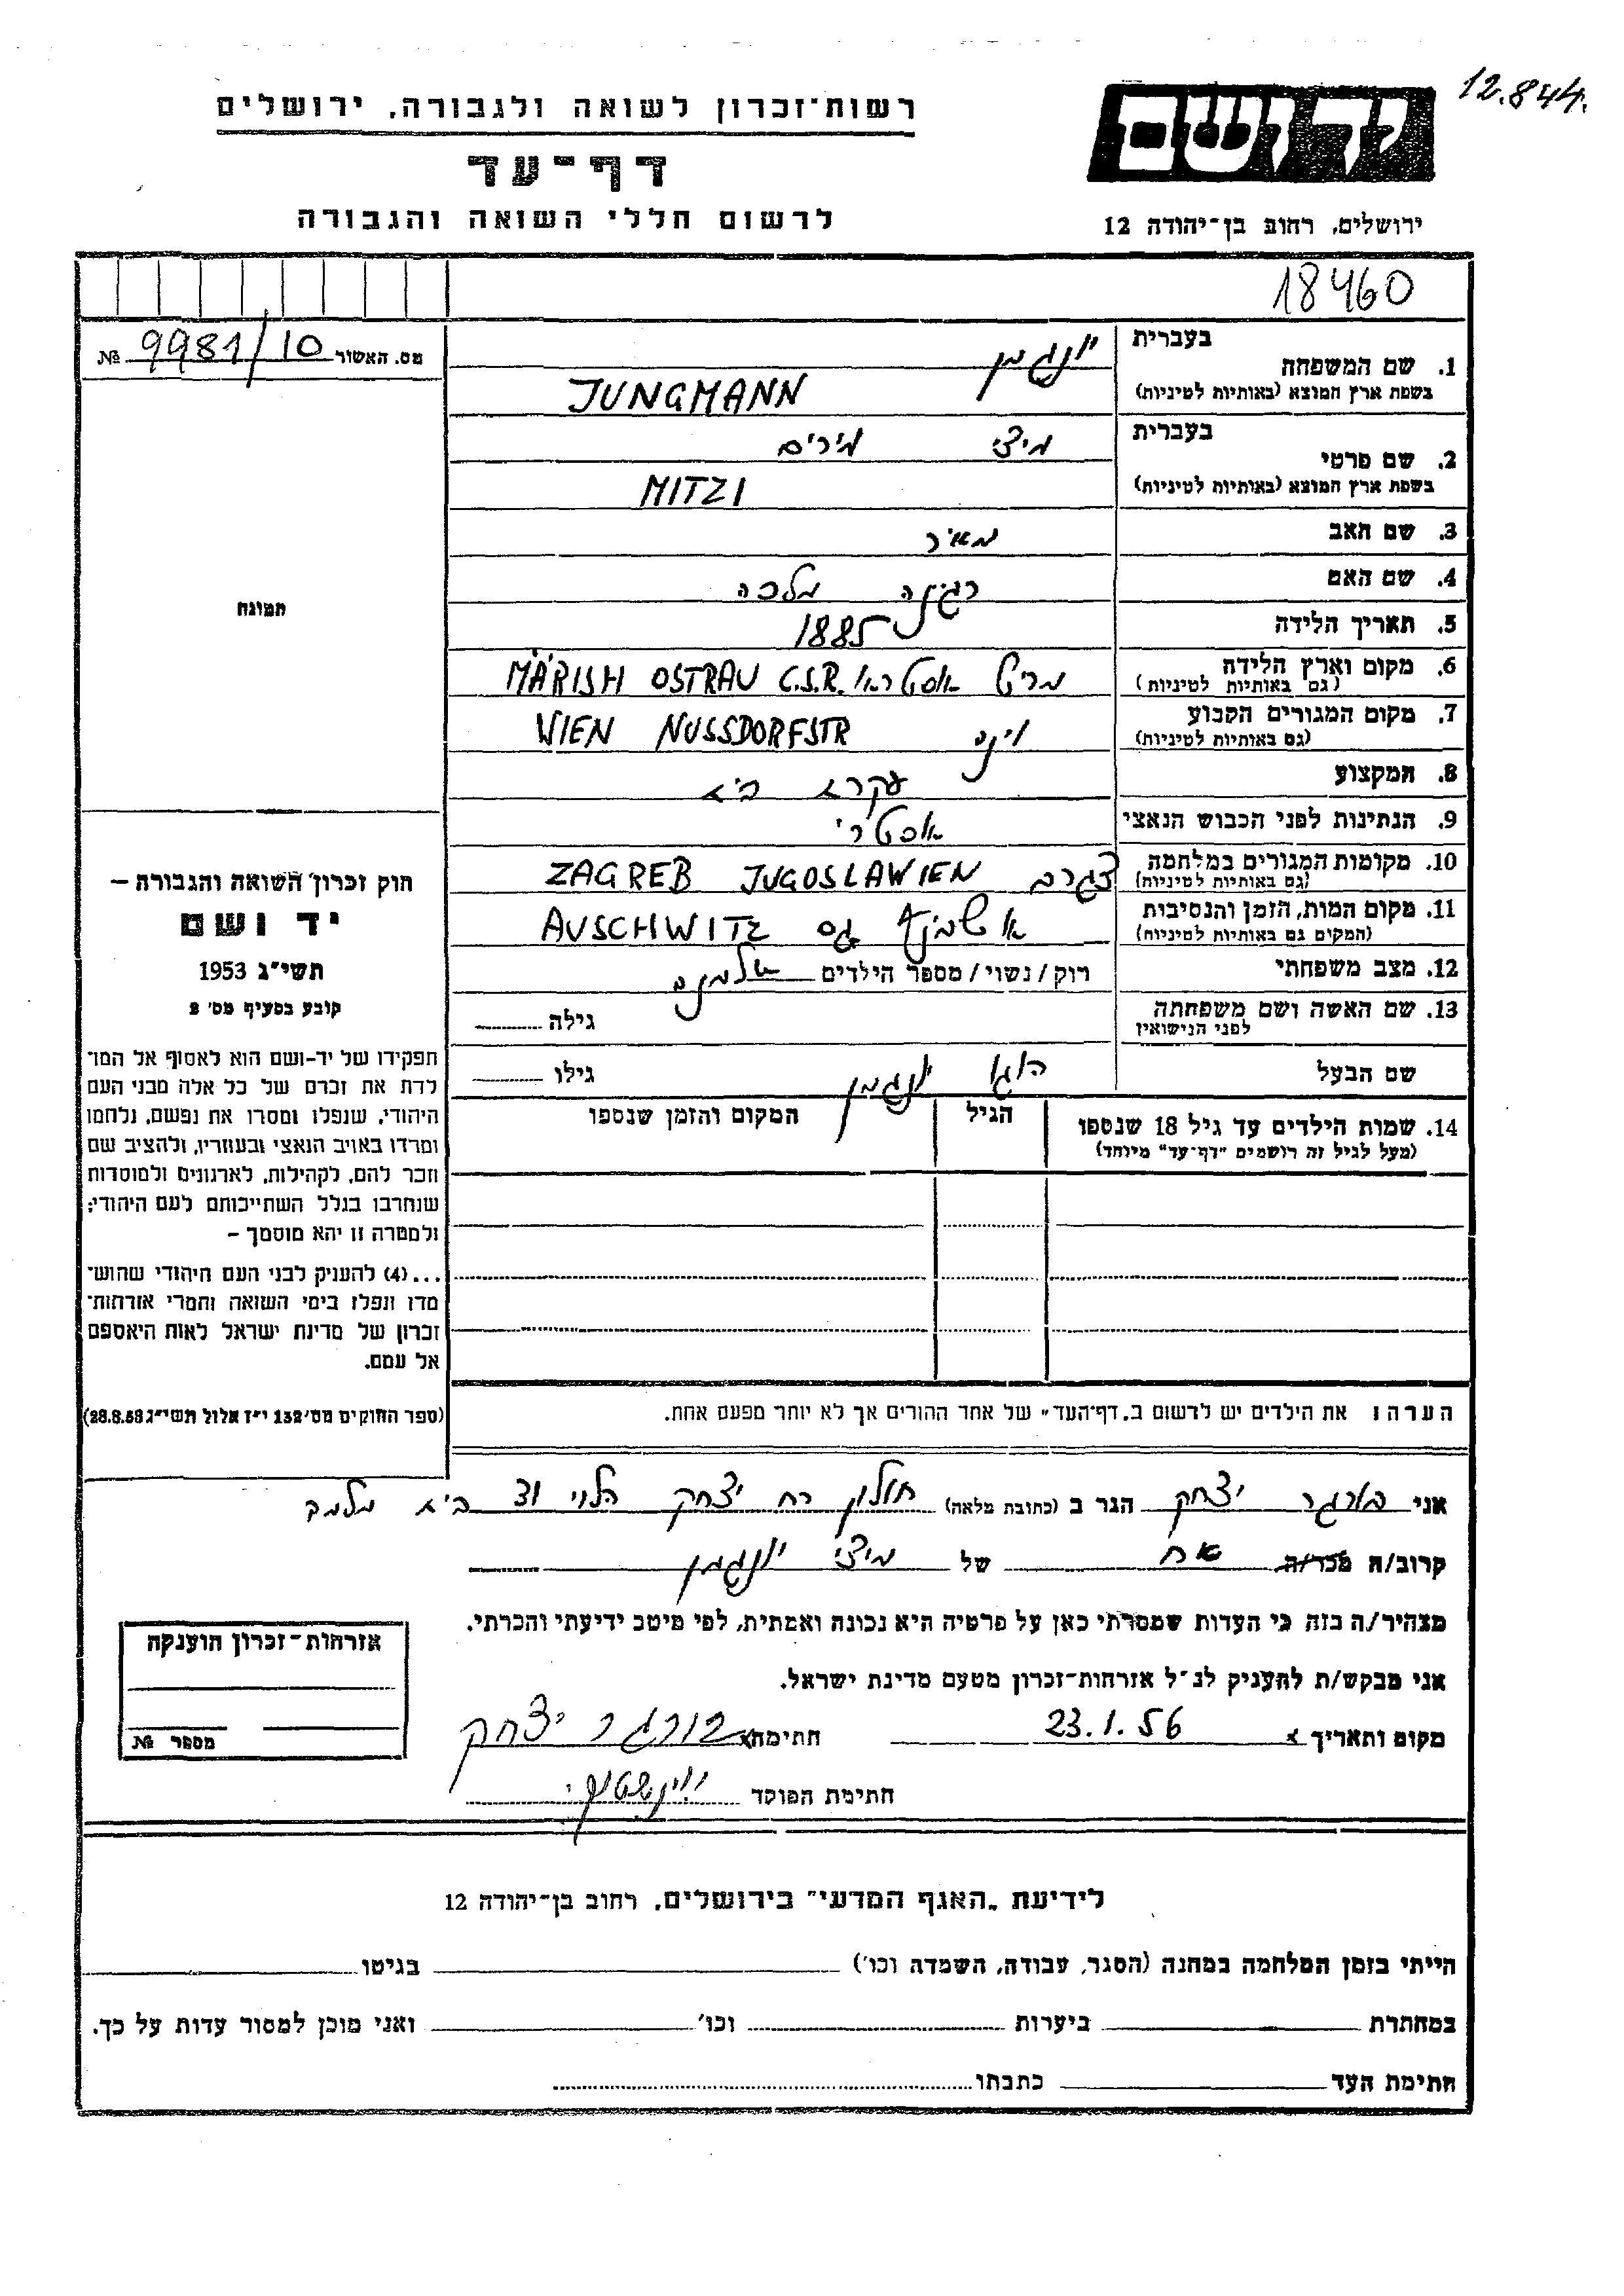 12.844.
רשות־זכרון לשואה ולגבורה, ירושלים
יד ושם
דף־עד
לרשום חללי השואה והגבורה
ירושלים, רחוב בן־יהודה 12
18460
מס. האשור 9981/10 №
1. שם המשפחה בעברית יונגמן
בשפת ארץ המוצא (באותיות לטיניות) JUNGMANN
2. שם פרטי בעברית מיצי מירים
בשפת ארץ המוצא (באותיות לטיניות) MITZI
3. שם האב מאיר
4. שם האם רגינה מלכה
5. תאריך הלידה 1885
6. מקום וארץ הלידה (גם באותיות לטיניות) מריש אוסטראו MÄRISH OSTRAU C.S.R.
7. מקום המגורים הקבוע (גם באותיות לטיניות) וינה WIEN NUSSDORFSTR
8. המקצוע עקרת בית
9. הנתינות לפני הכבוש הנאצי אוסטרי
10. מקומות המגורים במלחמה (גם באותיות לטיניות) זגרב ZAGREB JUGOSLAWIEN
11. מקום המות, הזמן והנסיבות (המקום גם באותיות לטיניות) AUSCHWITZ
12. מצב משפחתי רוק/נשוי/מספר הילדים אלמנה
13. שם האשה ושם משפחתה לפני הנישואין גילה
שם הבעל הוגו יונגמן גילו
14. שמות הילדים עד גיל 18 שנספו הגיל המקום והזמן שנספו
(מעל לגיל זה רושמים "דף־עד" מיוחד)
תמונה
חוק זכרון השואה והגבורה –
יד ושם
תשי"ג 1953
קובע בסעיף מס׳ 2
תפקידו של יד־ושם הוא לאסוף אל המו־
לדת את זכרם של כל אלה מבני העם
היהודי, שנפלו ומסרו את נפשם, נלחמו
ומרדו באויב הנאצי ובעוזריו, ולהציב שם
וזכר להם, לקהילות, לארגונים ולמוסדות
שנחרבו בגלל השתייכותם לעם היהודי;
ולמטרה זו יהא מוסמך –
...(4) להעניק לבני העם היהודי שהוש־
מדו ונפלו בימי השואה והמרי אזרחות־
זכרון של מדינת ישראל לאות היאספם
אל עמם.
(ספר החוקים מס׳ 132 י"ז אלול תשי"ג 28.8.53)
הערה: את הילדים יש לרשום ב„דף־העד" של אחד ההורים אך לא יותר מפעם אחת.
אני בורגר יצחק הגר ב (כתובת מלאה) חולון רח יצחק הלוי
קרוב/ה מכר/ה אח של מיצי יונגמן
מצהיר/ה בזה כי העדות שמסרתי כאן על פרטיה היא נכונה ואמתית, לפי מיטב ידיעתי והכרתי.
אני מבקש/ת להעניק לנ"ל אזרחות־זכרון מטעם מדינת ישראל.
מקום ותאריך x 23.1.56 חתימה x בורגר יצחק
חתימת הפוקד
אזרחות־זכרון הוענקה
מספר №
לידיעת „האגף המדעי" בירושלים, רחוב בן־יהודה 12
הייתי בזמן המלחמה במחנה (הסגר, עבודה, השמדה וכו׳) בגיטו
במחתרת ביערות וכו׳ ואני מוכן למסור עדות על כך.
חתימת העד כתבתו